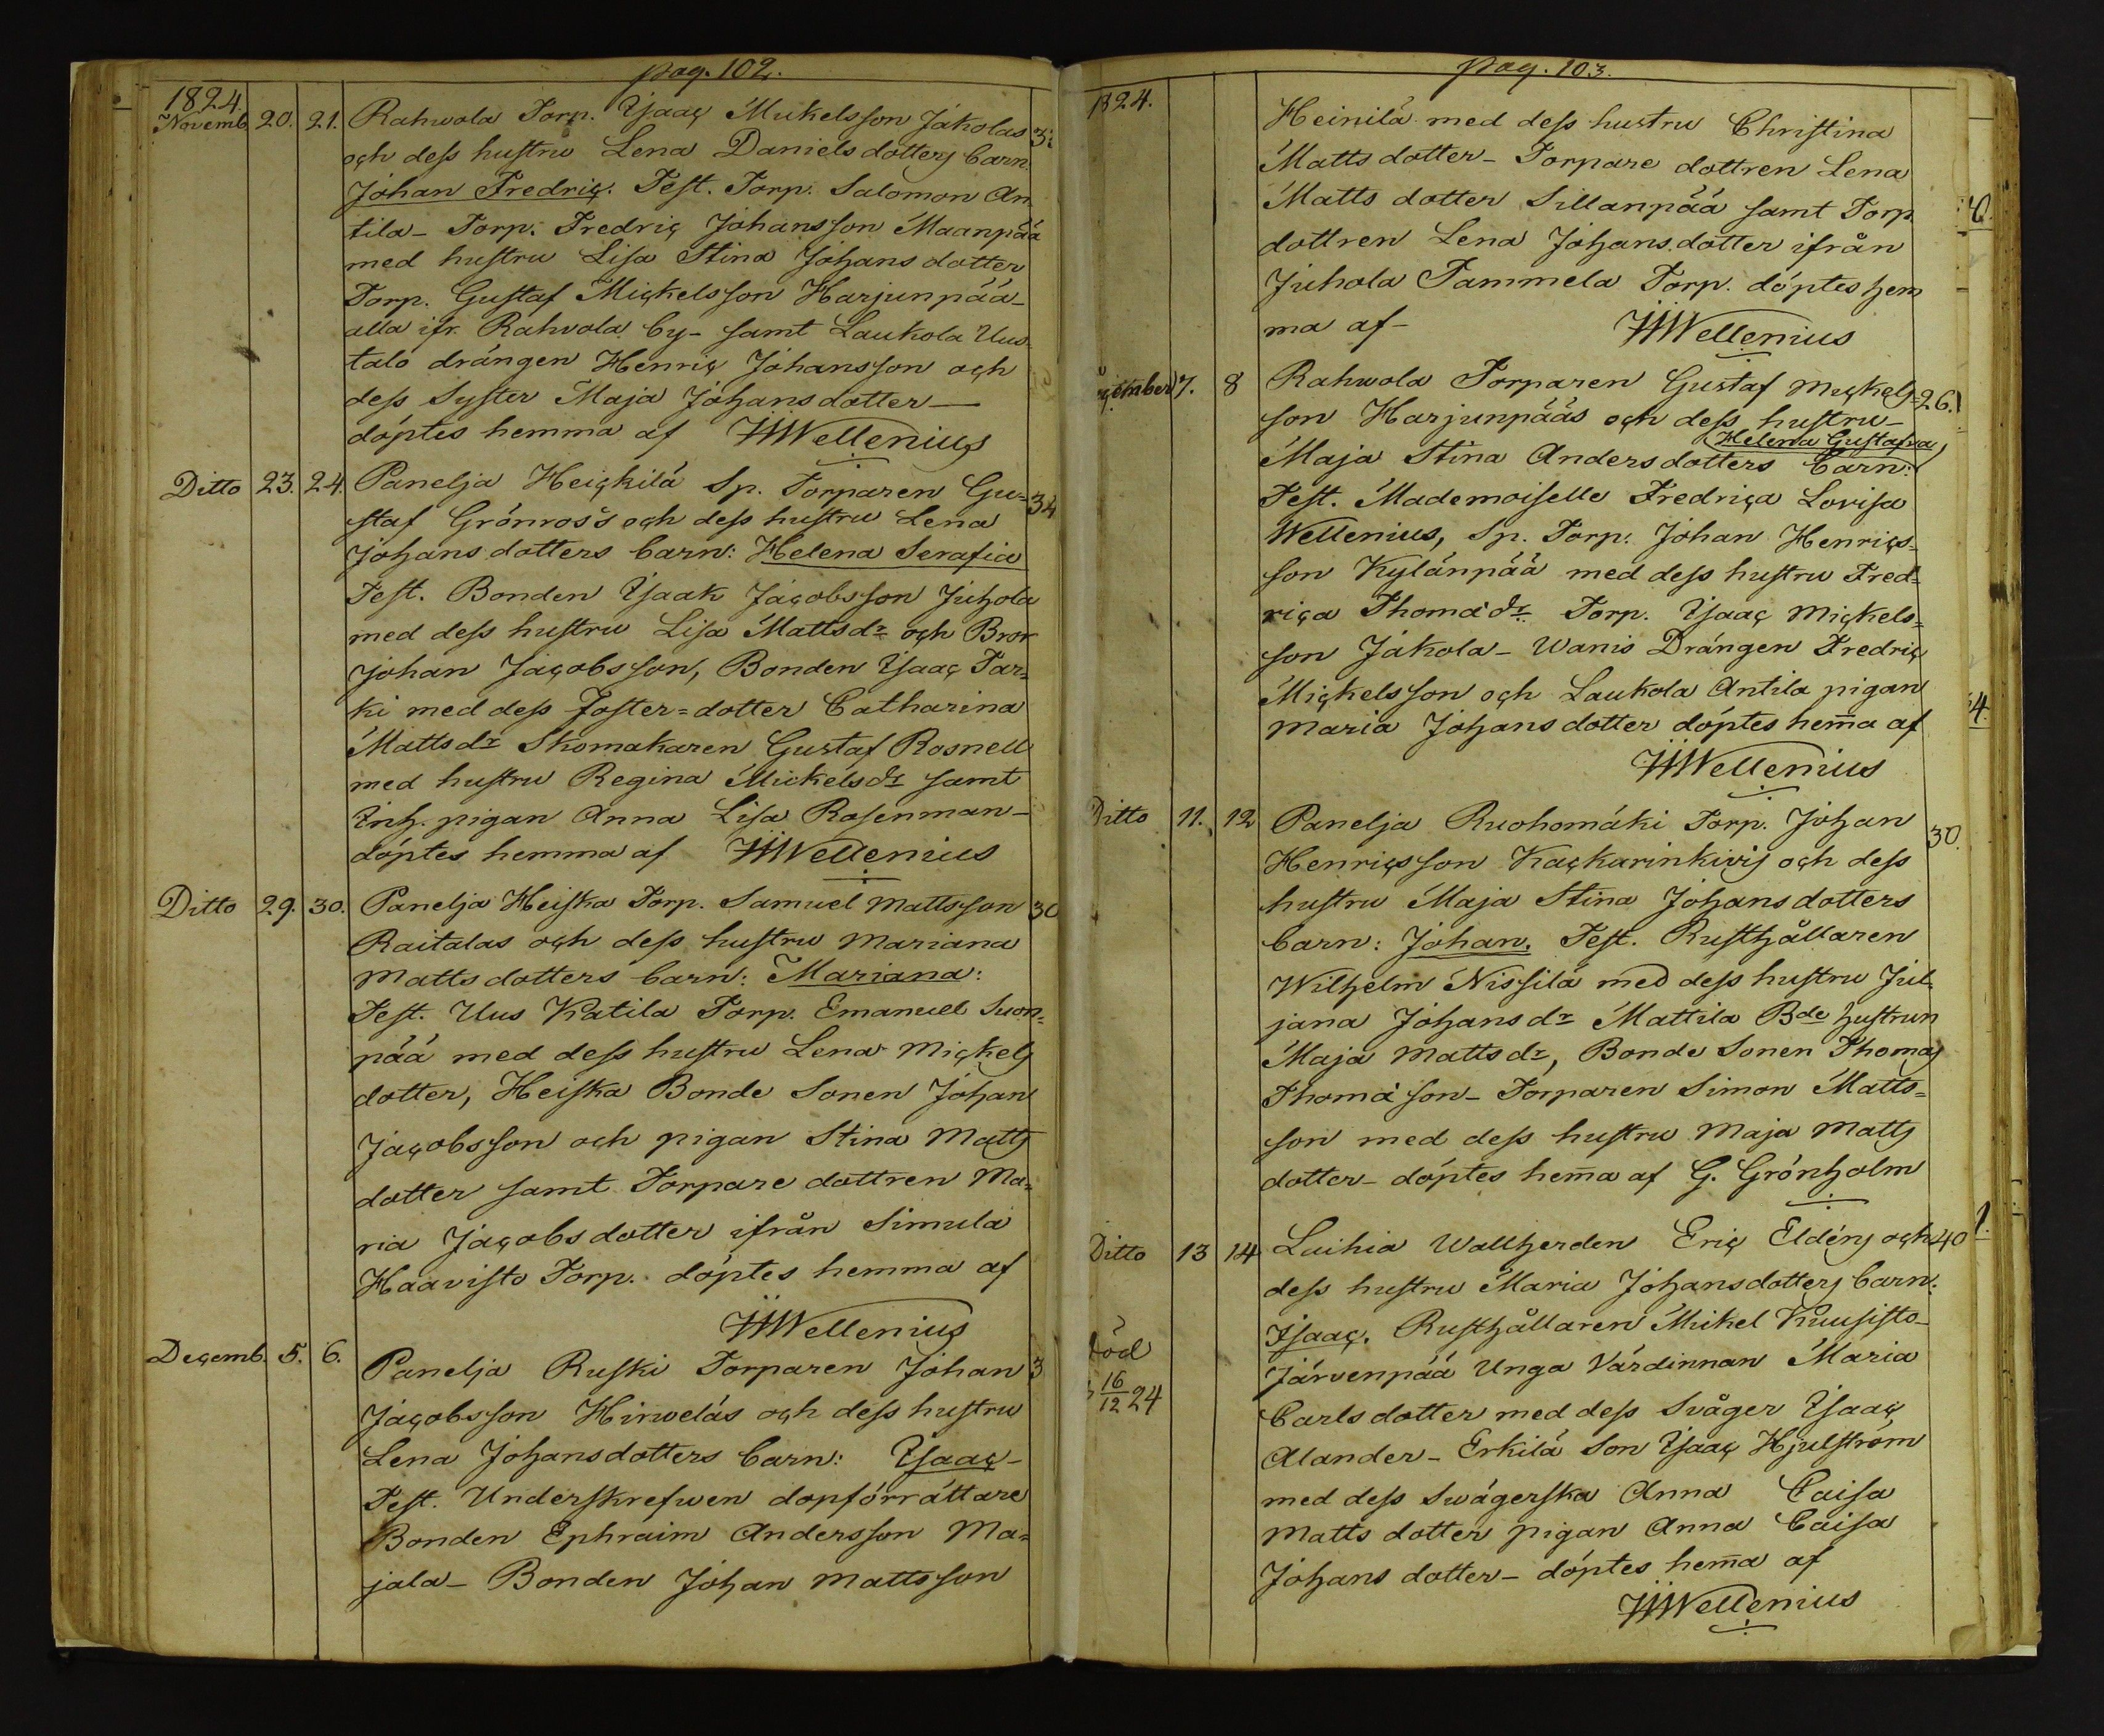 pag. 102.
1824.
Novemb. 20. 21. Rahwola Torp. Isaac Mickelsson Jakolas
och dess hustru Lena Danielsdotters barn
Johan Fredric. Test. Torp. Salomon An
tila - Torp. Fredric Johansson Maanpää
med hustru Lisa Stina Johans dotter
Torp. Gustaf Mickelsson Harjunpää -
alla ifr. Rahvola by - samt Laukola Uus
talo drängen Henric Johansson och
dess Syster Maja Johansdotter -
döptes hemma af Wellenius
Ditto 23. 24. Panelja Heickilä Sp. Torparen Gu= 34
staf Grönros's och dess hustru Lena
Johans dotters barn: Helena Serafia
Test. Bonden Isaak Jacobsson Juhola
med dess hustru Lisa Mattsdr och Bror
Johan Jacobsson, Bonden Isaac Tar=
ki med dess Foster=dotter Catharina
Mattsdr Skomakaren Gustaf Rosnell
med hustru Regina Mickelsdr samt
Inh. pigan Anna Lisa Rosenman -
döptes hemma af Wellenius
Ditto 29. 30. Panelja Heiska Torp. Samuel Mattsson 30
Raitalas och dess hustru Mariana
Mattsdotters barn: Mariana:
Test. Uus Katila Torp. Emanuel Suon=
pää med dess hustru Lena Mickels
dotter, Heiska Bonde Sonen Johan
Jacobsson och pigan Stina Matts
dotter samt Torpare dottren Ma=
ria Jacobsdotter ifrån Simula
Haavisto Torp. döptes hemma af
Wellenius
Decemb. 5. 6. Panelja Ruski Torparen Johan 3
Jacobsson Hirweläs och dess hustru
Lena Johansdotters barn: Isaac -
Test. Underskrefwen dopförrättare
Bonden Ephraim Andersson Ma=
jala - Bonden Johan Mattsson
pag. 103.
1824.
Heinilä med dess hustru Christina
Matts dotter - Torpare dottren Lena
Matts dotter Sillanpää samt Torp
dottren Lena Johans.dotter ifrån
Juhola Tammela Torp. döptes hem
ma af - Wellenius
7. 8 Rahwola Torparen Gustaf Mickels= 26.
son Harjunpääs och dess hustru -
Helena Gustafva,
Maja Stina Andersdotters barn:
Test. Mademoiselle Fredrica Lovisa
Wellenius, Sp. Torp. Johan Henrics=
son Kylänpää med dess hustru Fred=
rica Thomædr. Torp. Isaac Mickels=
son Jakola - Wanis Drängen Fredric
Mickelsson och Laukola Antila pigan
Maria Johansdotter döptes hem̄a af
Wellenius
Ditto 11. 12 Panelja Ruohomäki Torp. Johan 30.
Henricsson Kackurinkivis och dess
hustru Maja Stina Johansdotters
barn: Johan. Test. Rusthållaren
Wilhelm Nissilä med dess hustru Jul=
jana Johansdr Mattila Bde hustrun
Maja Mattsdr, Bonde Sonen Thomas
Thomæson - Torparen Simon Matts=
son med dess hustru Maja Matts
dotter - döptes hem̄a af G. Grönholm
Ditto 13 14 Luihia Wallherden Eric Eldéns och 40
dess hustru Maria Johansdotters barn:
Isaac. Rusthållaren Mickel Kuusisto -
Järvenpää Unga Värdinnan Maria
död
16/12 24
Carls dotter med dess Svåger Isaac
Alander - Erkilä Son Isaac Hjulström
med dess Swägerska Anna Caisa
Matts dotter pigan Anna Caisa
Johans dotter - döptes hem̄a af
Wellenius